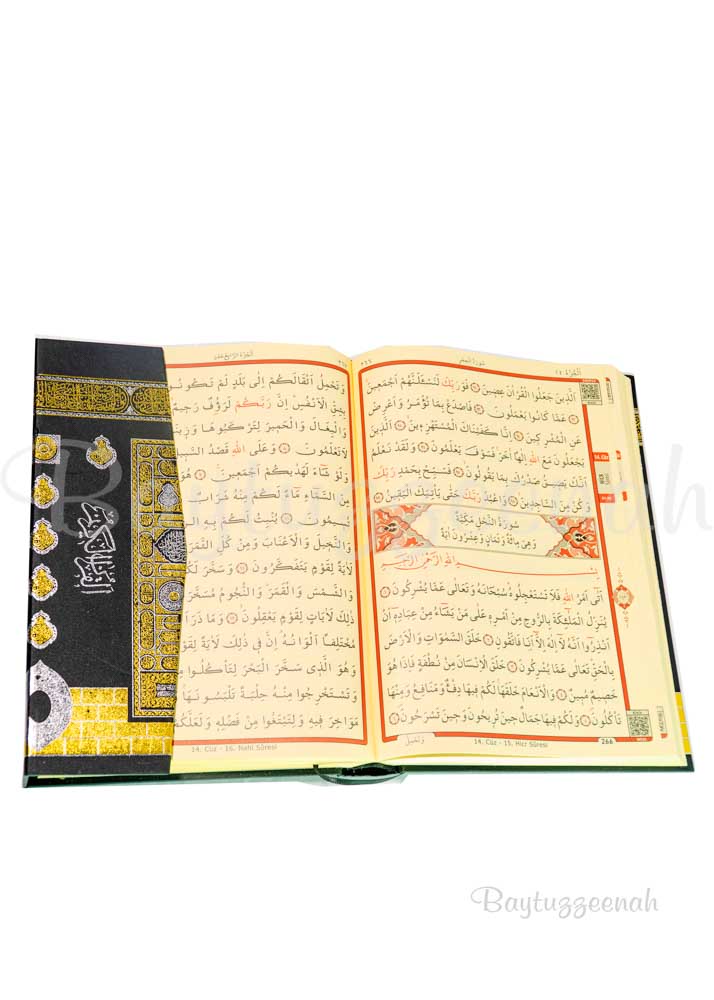 ٢٦٦
سورة الحجر
الجزء ١٤
اَلَّذ۪ينَ جَعَلُوا الْقُرْاٰنَ عِض۪ينَ فَوَرَبِّكَ لَنَسْـَٔلَنَّهُمْ اَجْمَع۪ينَ
عَمَّا كَانُوا يَعْمَلُونَ فَاصْدَعْ بِمَا تُؤْمَرُ وَاَعْرِضْ
عَنِ الْمُشْرِك۪ينَ اِنَّا كَفَيْنَاكَ الْمُسْتَهْزِء۪ينَ اَلَّذ۪ينَ
يَجْعَلُونَ مَعَ اللّٰهِ اِلٰهًا اٰخَرَ فَسَوْفَ يَعْلَمُونَ وَلَقَدْ نَعْلَمُ
اَنَّكَ يَض۪يقُ صَدْرُكَ بِمَا يَقُولُونَ فَسَبِّحْ بِحَمْدِ رَبِّكَ
وَكُنْ مِنَ السَّاجِد۪ينَ وَاعْبُدْ رَبَّكَ حَتّٰى يَأْتِيَكَ الْيَق۪ينُ
سورة النحل مكية
وهى مائة وثمان وعشرون اية
بِسْمِ اللّٰهِ الرَّحْمٰنِ الرَّح۪يمِ
اَتٰٓى اَمْرُ اللّٰهِ فَلَا تَسْتَعْجِلُوهُ سُبْحَانَهُ وَتَعَالٰى عَمَّا يُشْرِكُونَ
يُنَزِّلُ الْمَلٰٓئِكَةَ بِالرُّوحِ مِنْ اَمْرِه۪ عَلٰى مَنْ يَشَٓاءُ مِنْ عِبَادِه۪ٓ اَنْ
اَنْذِرُٓوا اَنَّهُ لَٓا اِلٰهَ اِلَّٓا اَنَا فَاتَّقُونِ خَلَقَ السَّمٰوَاتِ وَالْاَرْضَ
بِالْحَقِّ تَعَالٰى عَمَّا يُشْرِكُونَ خَلَقَ الْاِنْسَانَ مِنْ نُطْفَةٍ فَاِذَا هُوَ
خَص۪يمٌ مُب۪ينٌ وَالْاَنْعَامَ خَلَقَهَا لَكُمْ ف۪يهَا دِفْءٌ وَمَنَافِعُ وَمِنْهَا
تَأْكُلُونَ وَلَكُمْ ف۪يهَا جَمَالٌ ح۪ينَ تُر۪يحُونَ وَح۪ينَ تَسْرَحُونَ
وَتَحْمِلُ
14. Cüz - 15. Hicr Sûresi
266
الجزء الرابع عشر
وَتَحْمِلُ اَثْقَالَكُمْ اِلٰى بَلَدٍ لَمْ تَكُونُوا
بِشِقِّ الْاَنْفُسِ اِنَّ رَبَّكُمْ لَرَؤُ۫فٌ رَح۪يمٌ
وَالْبِغَالَ وَالْحَم۪يرَ لِتَرْكَبُوهَا وَز۪ينَةً
لَا تَعْلَمُونَ وَعَلَى اللّٰهِ قَصْدُ السَّب۪يلِ
وَلَوْ شَٓاءَ لَهَدٰيكُمْ اَجْمَع۪ينَ هُوَ
مِنَ السَّمَٓاءِ مَٓاءً لَكُمْ مِنْهُ شَرَابٌ
تُس۪يمُونَ يُنْبِتُ لَكُمْ بِهِ ال
وَالنَّخ۪يلَ وَالْاَعْنَابَ وَمِنْ كُلِّ الثَّمَرَ
لَاٰيَةً لِقَوْمٍ يَتَفَكَّرُونَ وَسَخَّرَ لَكُ
وَالشَّمْسَ وَالْقَمَرَ وَالنُّجُومُ مُسَخَّرَ
ذٰلِكَ لَاٰيَاتٍ لِقَوْمٍ يَعْقِلُونَ وَمَا ذَرَاَ
مُخْتَلِفًا اَلْوَانُهُ اِنَّ ف۪ي ذٰلِكَ لَاٰيَةً لِقَوْ
وَهُوَ الَّذ۪ي سَخَّرَ الْبَحْرَ لِتَأْكُلُوا
وَتَسْتَخْرِجُوا مِنْهُ حِلْيَةً تَلْبَسُونَهَا
مَوَاخِرَ ف۪يهِ وَلِتَبْتَغُوا مِنْ فَضْلِه۪ وَلَعَلَّكُمْ
14. Cüz - 16. Nahl Sûresi
القرآن الكريم
Baytuzzeenah
Baytuzzeenah